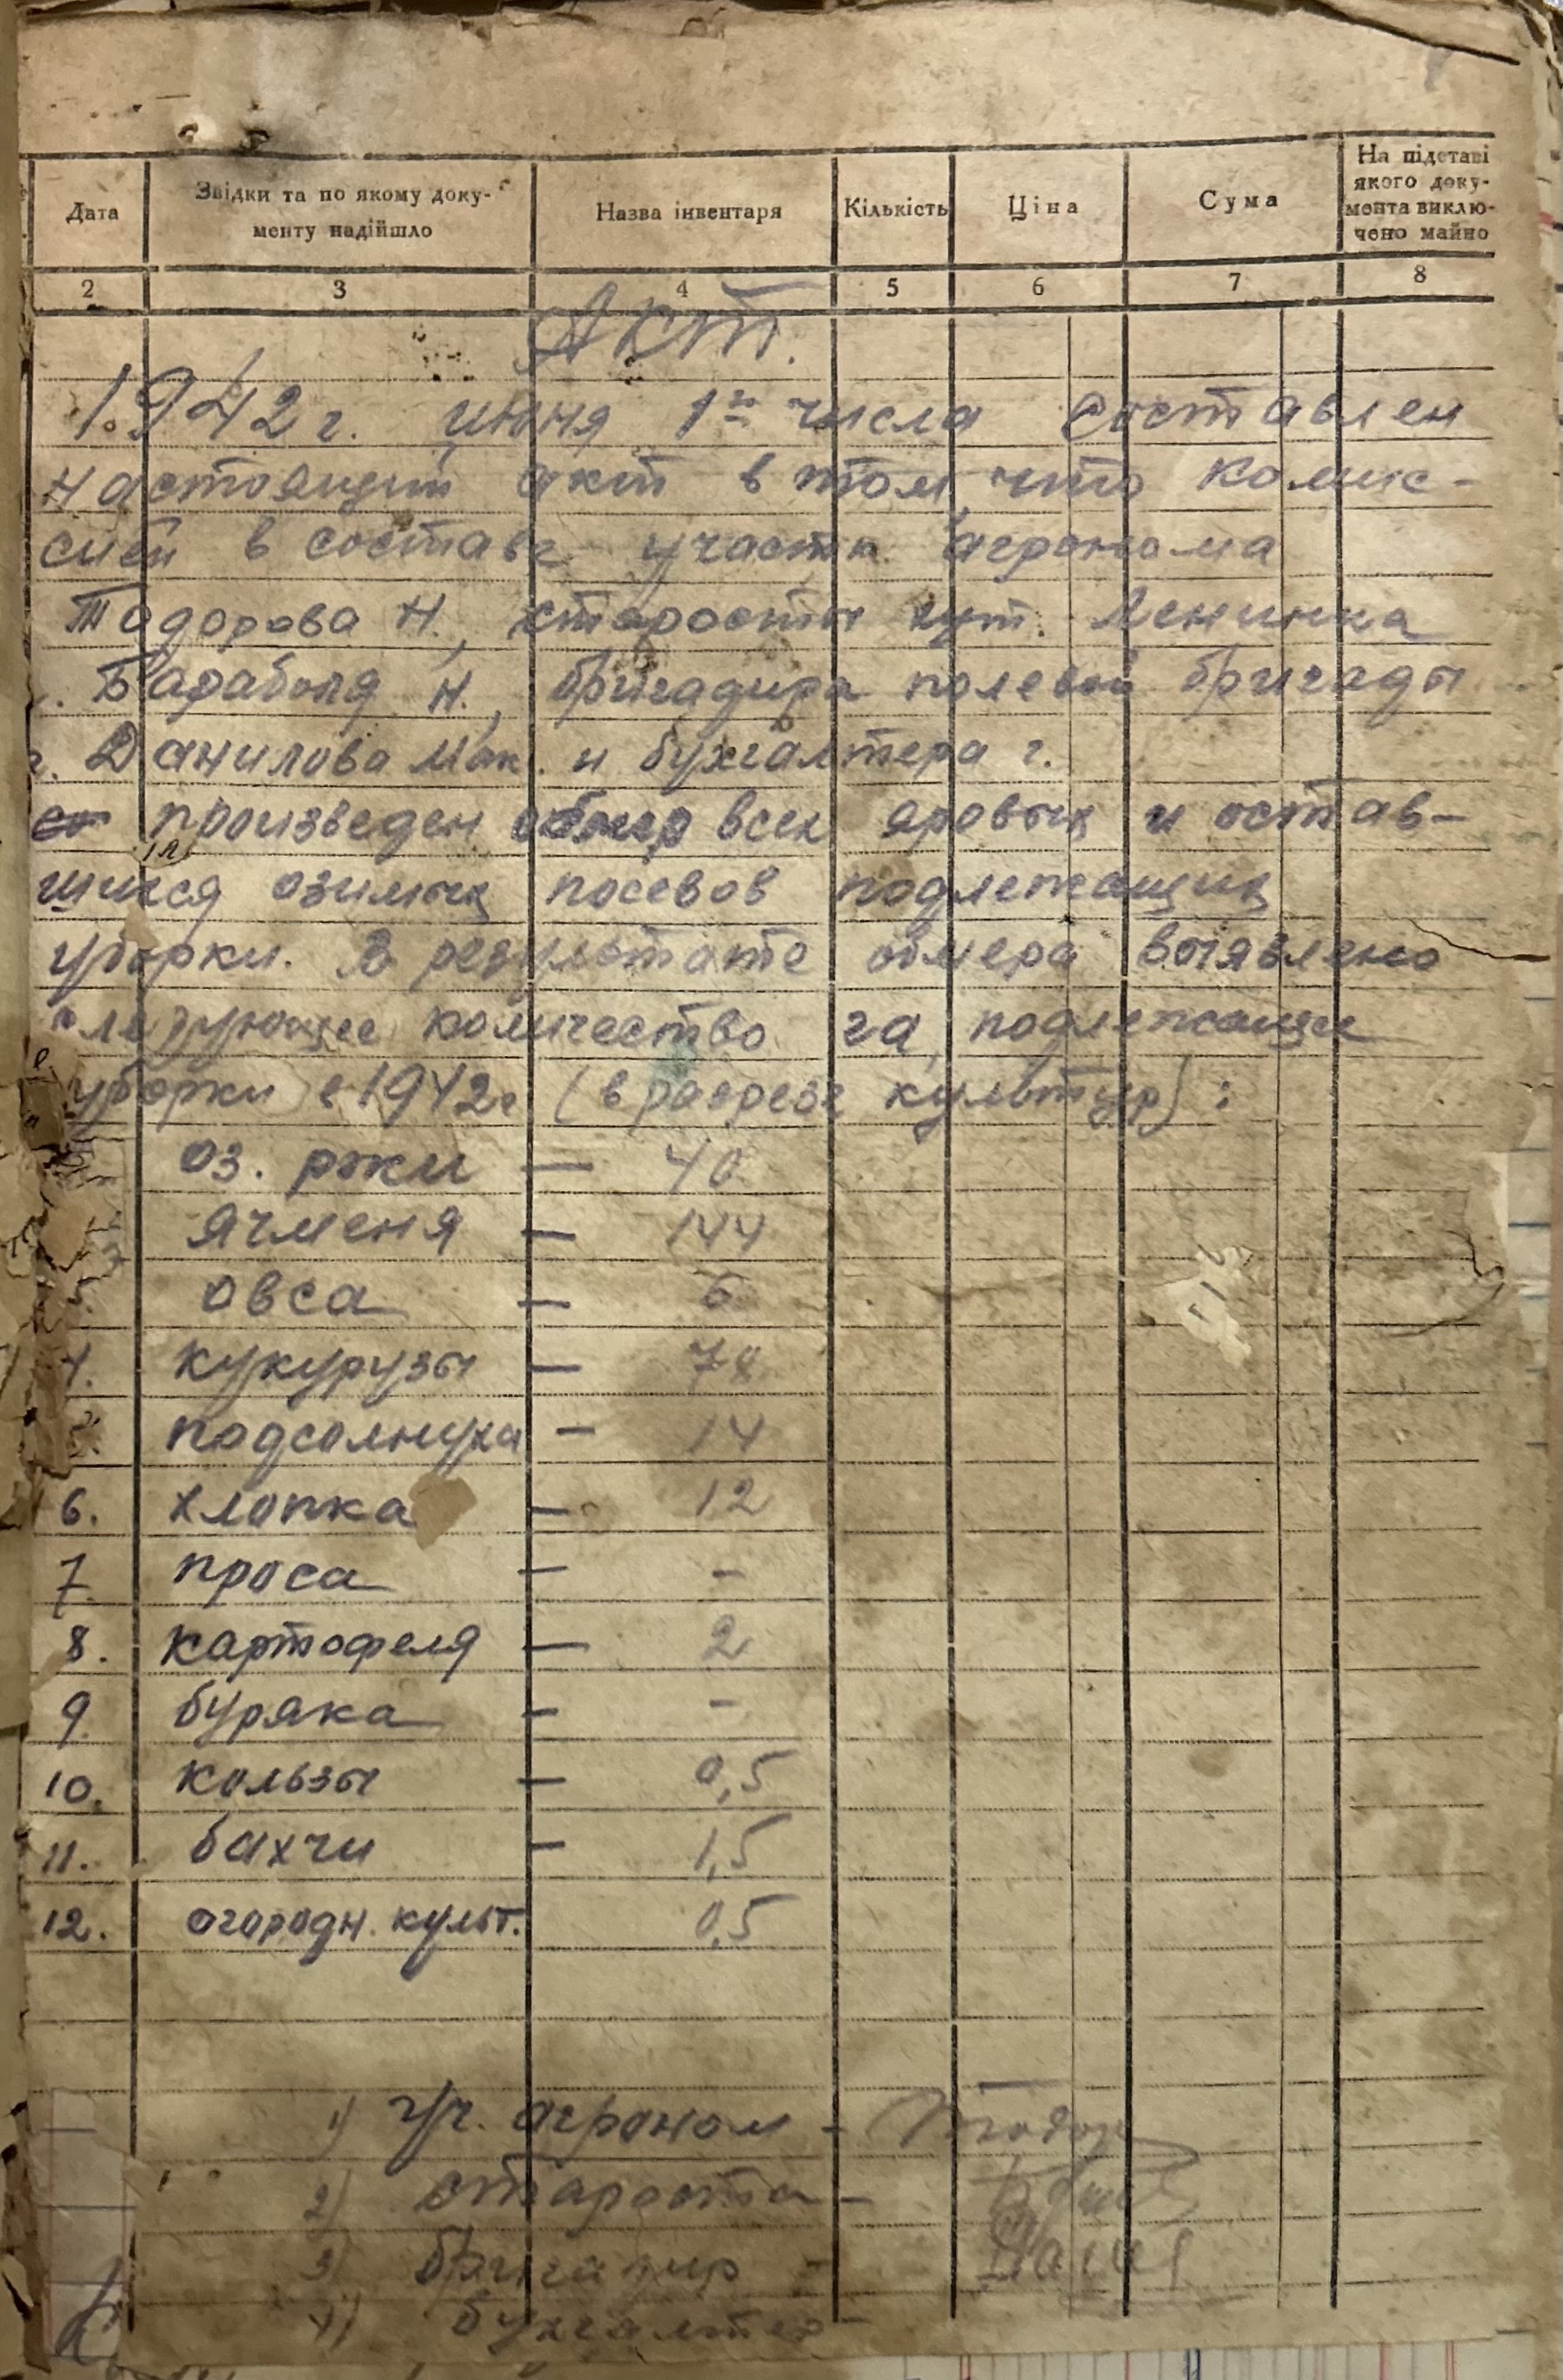 Дата
Звідки та по якому доку-
менту надійшло
Назва інвентаря
Кількість
Ціна
Сума
На підставі
якого доку-
мента виклю-
чено майно
2 3 4 5 6 7 8
Акт.
1942 г. июня 1го числа составлен
настоящий акт в том, что комис-
сией в составе участк. агронома
Тодорова Н., старосты хут. Ленинка
Бараболя Н., бригадира полевой бригады
г. Данилова Мак. и бухгалтера г.
произведен обмер всех яровых и остав-
шихся озимых посевов подлежащих
уборки. В результате обмера выявлено
следующее количество га, подлежащее
уборки в 1942г (в разрезе культур):
оз. ржи — 40
ячменя — 144
овса — 6
4. кукурузы — 78
подсолнуха — 14
6. хлопка — 12
7. проса — -
8. картофеля — 2
9. буряка - -
10. кользы — 0,5
11. бахчи — 1,5
12. огородн. культ. 0,5
1) Уч. агроном - Тодор
2) Староста -
3) бригадир -
4) бухгалтер -